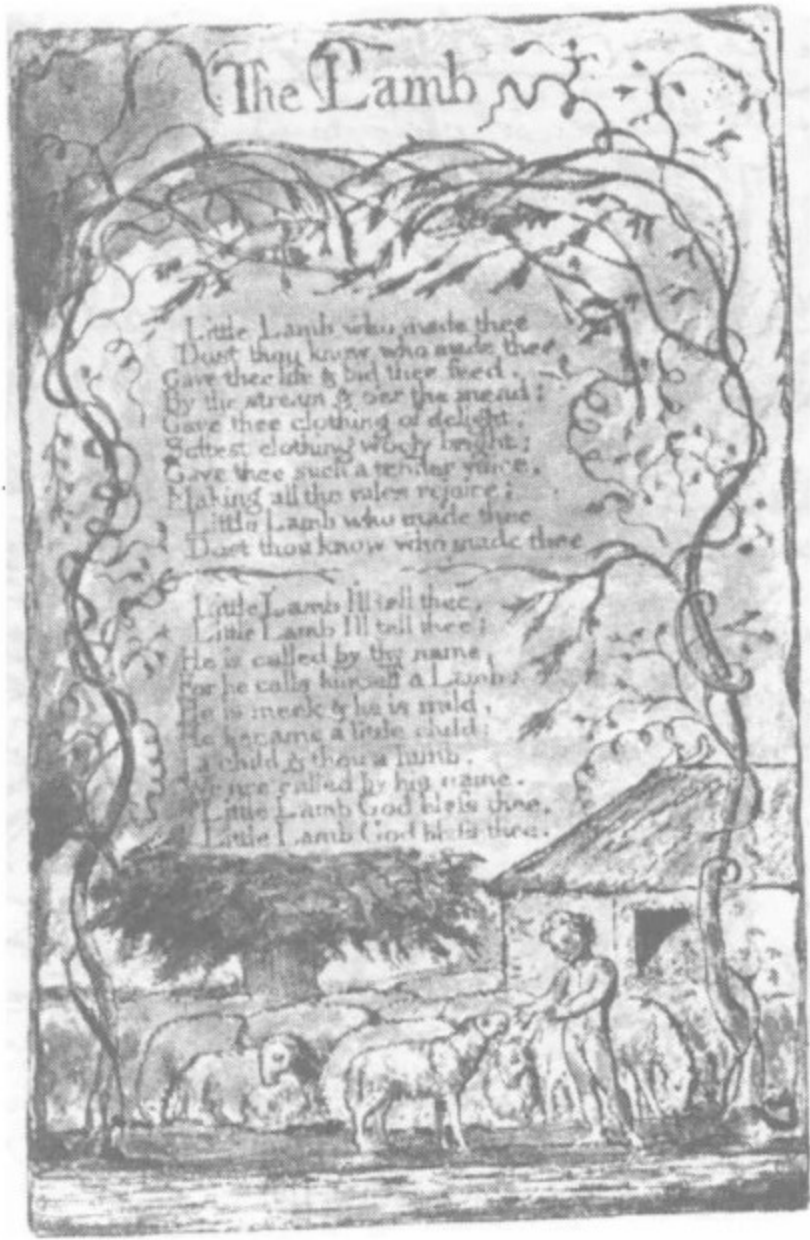 The Lamb
Little Lamb who made thee
Dost thou know who made thee
Gave thee life & bid thee feed.
By the stream & oer the mead;
Gave thee clothing of delight,
Softest clothing wooly bright;
Gave thee such a tender voice,
Making all the vales rejoice;
Little Lamb who made thee
Dost thou know who made thee
Little Lamb I'll tell thee,
Little Lamb I'll tell thee;
He is called by thy name,
For he calls himself a Lamb:
He is meek & he is mild,
He became a little child:
I a child & thou a lamb,
We are called by his name.
Little Lamb God bless thee,
Little Lamb God bless thee.